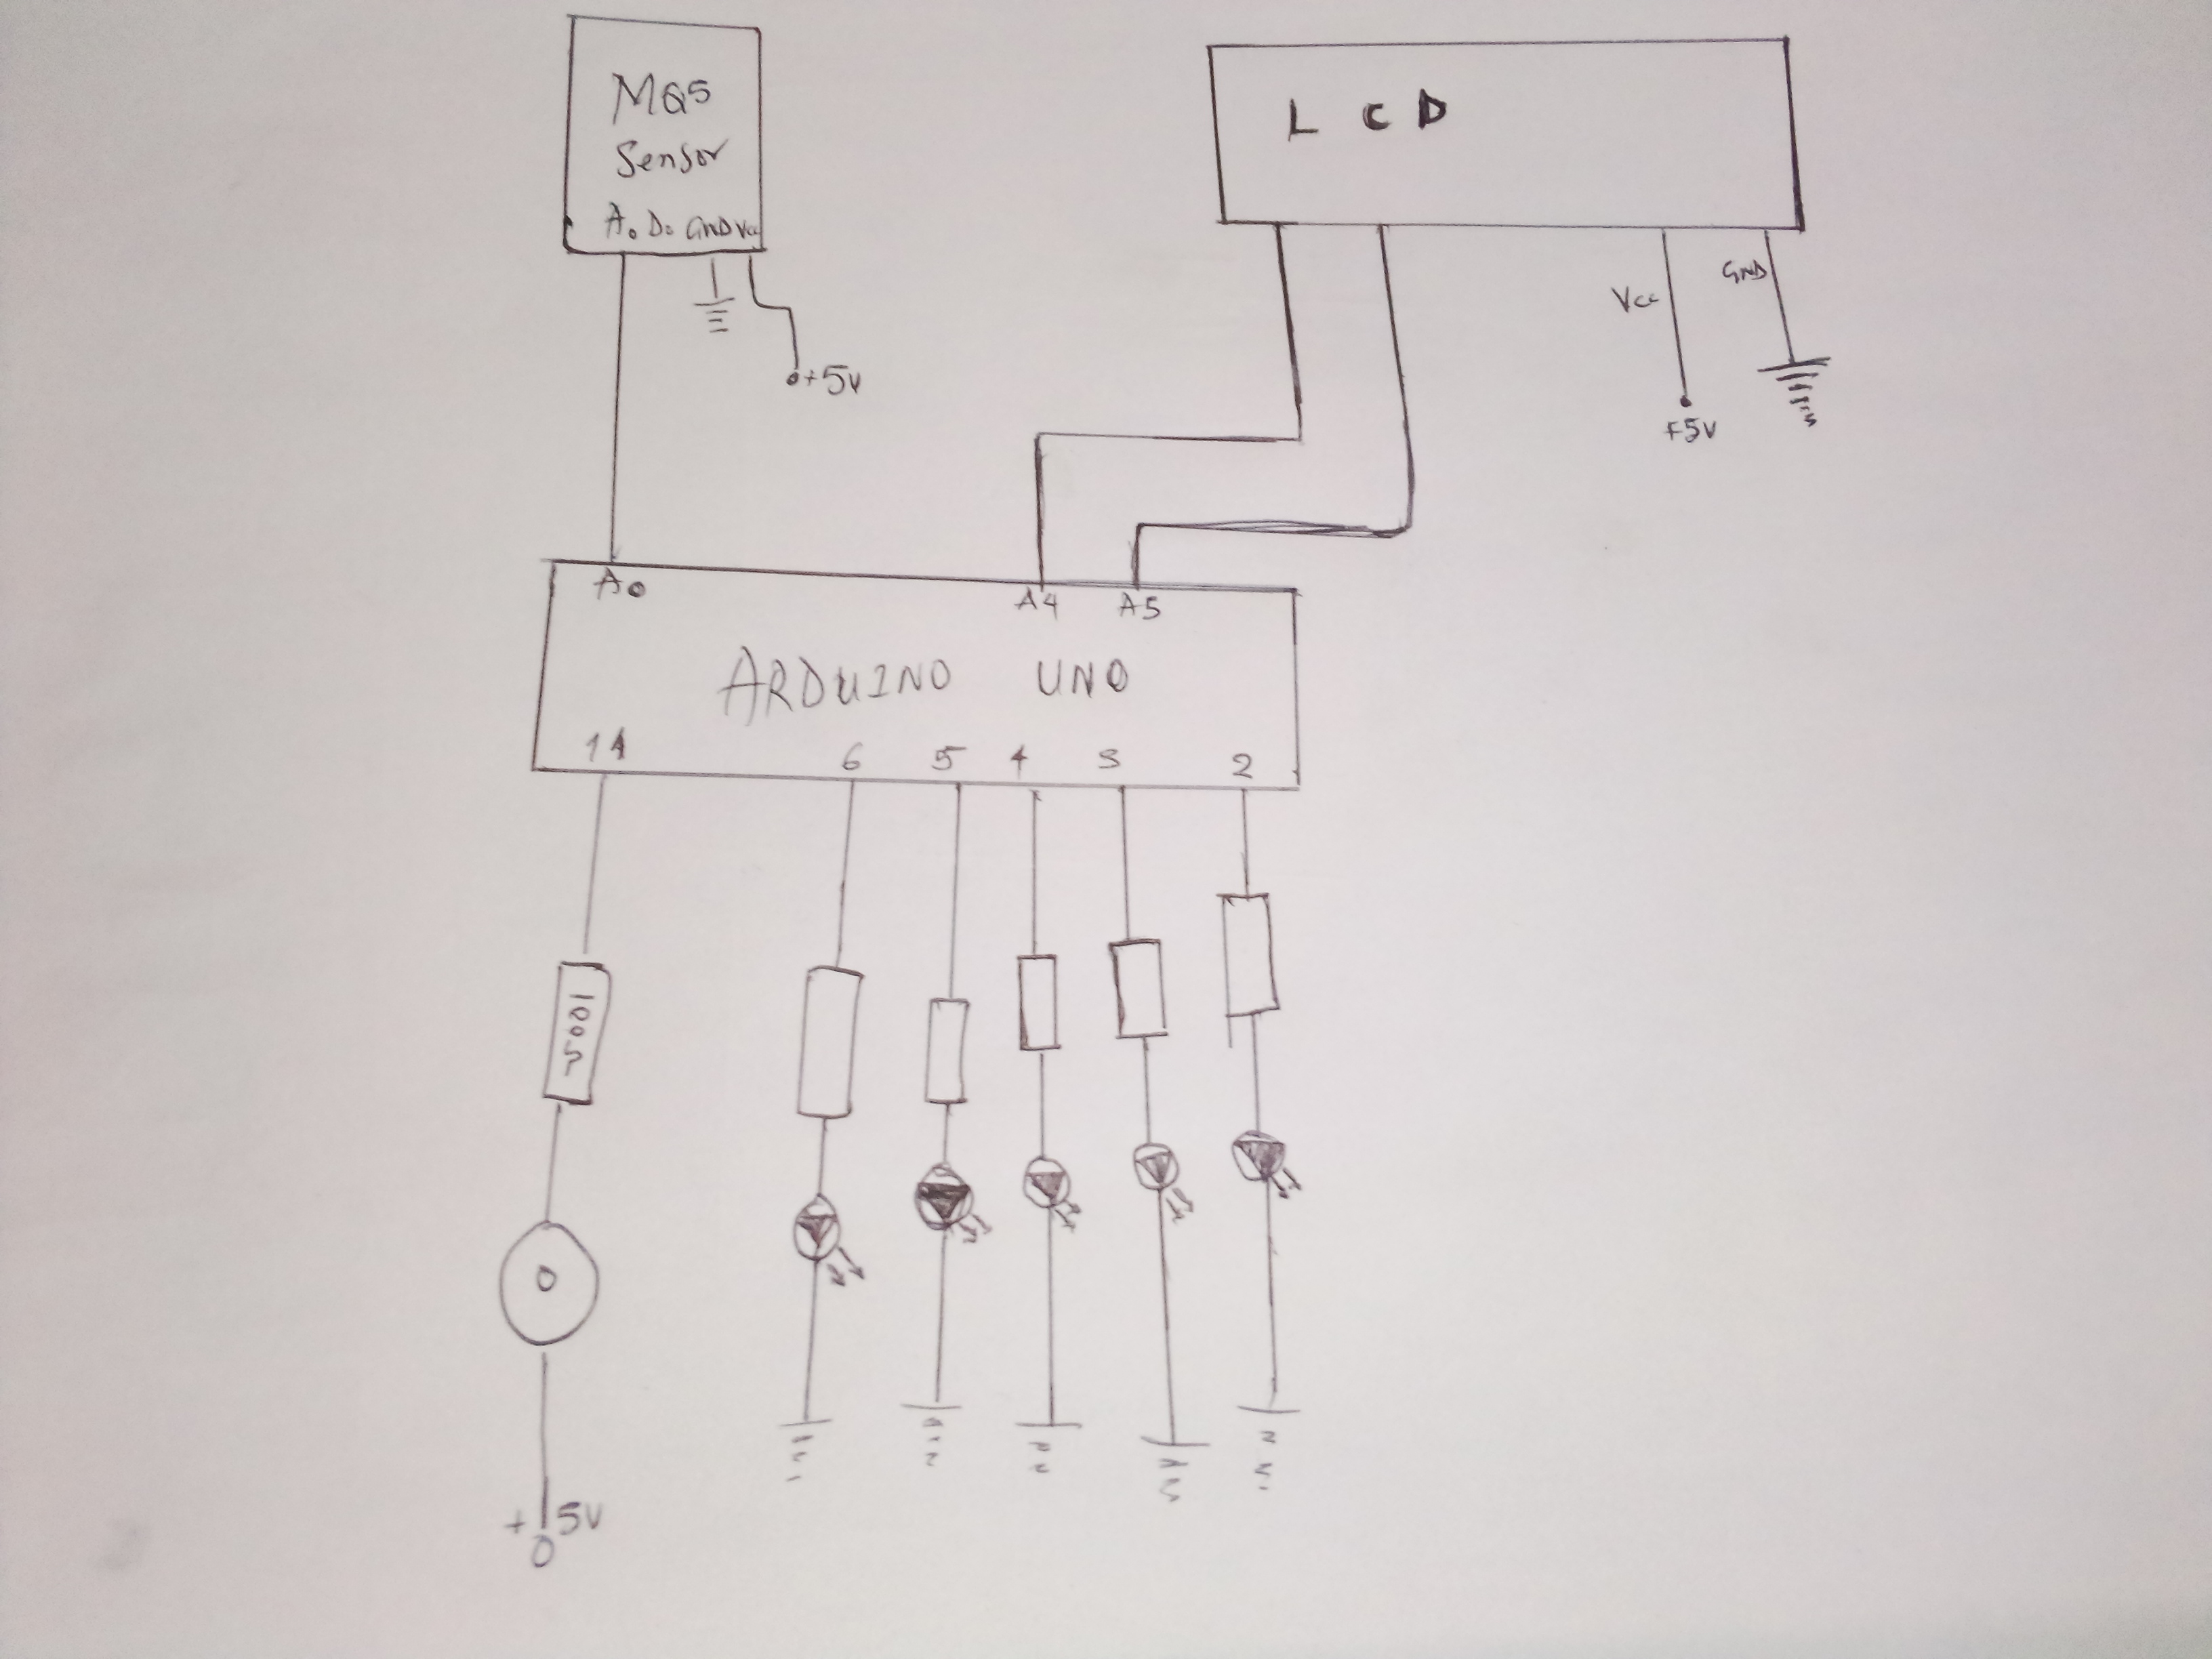 MQ5
Sensor
A0 D0 GND Vcc
+5V
L C D
Vcc
GND
+5V
A0
A4
A5
ARDUINO UNO
14
6
5
4
3
2
100Ω
+5V